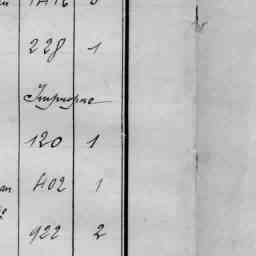 1416
228 1
120 1
an 402 1
922 2